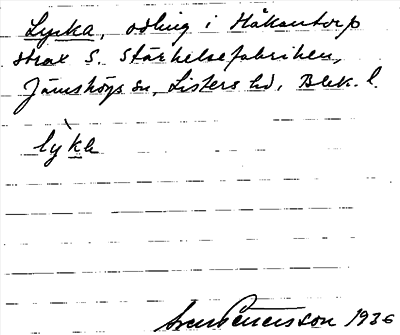 Lycka, odling i Håkantorp
strax S. Stärkelsefabriken,
Jämshögs sn, Listers hd, Blek. l.
lỳka
Sven Benson 1936